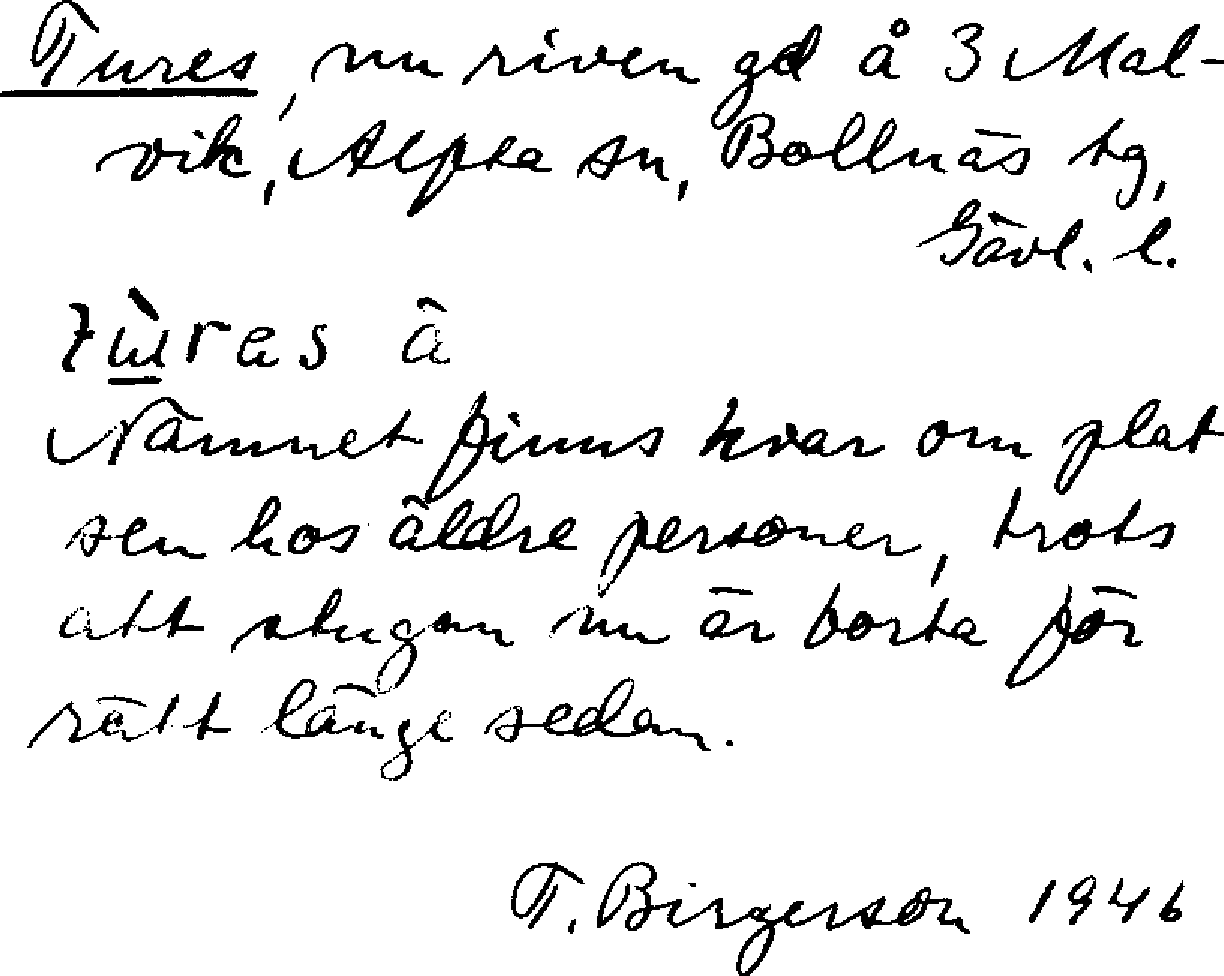 Tures, nu riven gd å 3 Mal-
vik, Alfta sn, Bollnäs tg,
Gävl. l.
tùras ä
Namnet finns kvar om plat
sen hos äldre personer, trots
att stugan nu är borta för
rätt länge sedan.
T. Birgerson 1946